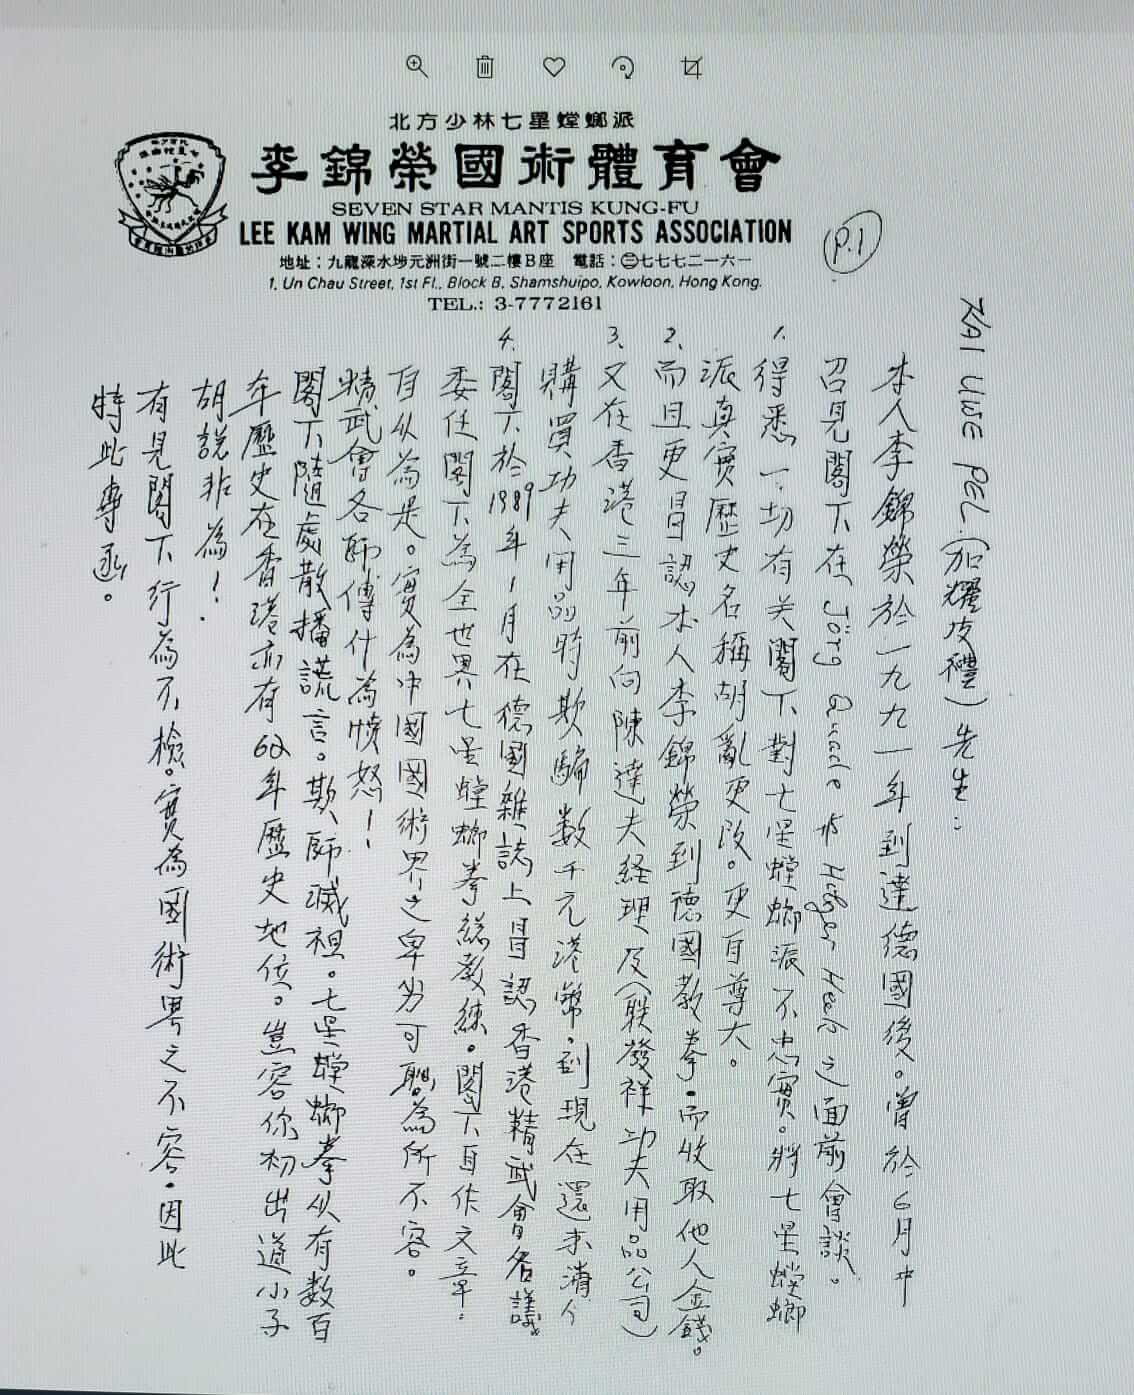 北方少林七星螳螂派
李錦榮國術體育會
SEVEN STAR MANTIS KUNG-FU
LEE KAM WING MARTIAL ART SPORTS ASSOCIATION
地址：九龍深水埗元洲街一號二樓B座　電話：㊂七七七二一六一
1, Un Chau Street, 1st Fl., Block B, Shamshuipo, Kowloon, Hong Kong.
TEL.: 3-7772161
P.1
KAI UWE PEL.(加耀皮禮)先生：
本人李錦榮於一九九一年到達德國後。曾於6月中
召見閣下在 Jörg Quade 之面前會談。
1. 得悉一切有关閣下對七星螳螂派不忠實。將七星螳螂
派真實歷史名稱胡亂更改。更自尊大。
2. 而且更冒認本人李錦榮到德國教拳。而收取他人金錢。
3. 又在香港三年前向陳達夫経理及(联發祥功夫用品公司)
購買功夫用品時欺騙数千元港幣。到現在還未清付
4. 閣下於1989年1月在德國雜誌上冒認香港精武會名議
委任閣下為全世界七星螳螂拳総教練。閣下自作文章.
自从為是。實為中國國術界之卑劣可恥為所不容。
精武會各師傅什為憤怒！
閣下隨處散播謊言。欺師滅祖。七星螳螂拳从有数百
年歷史在香港亦有62年歷史地位。豈容你初出道小子
胡說非為！
有見閣下行為不檢。實為國術界之不容。因此
特此專函。